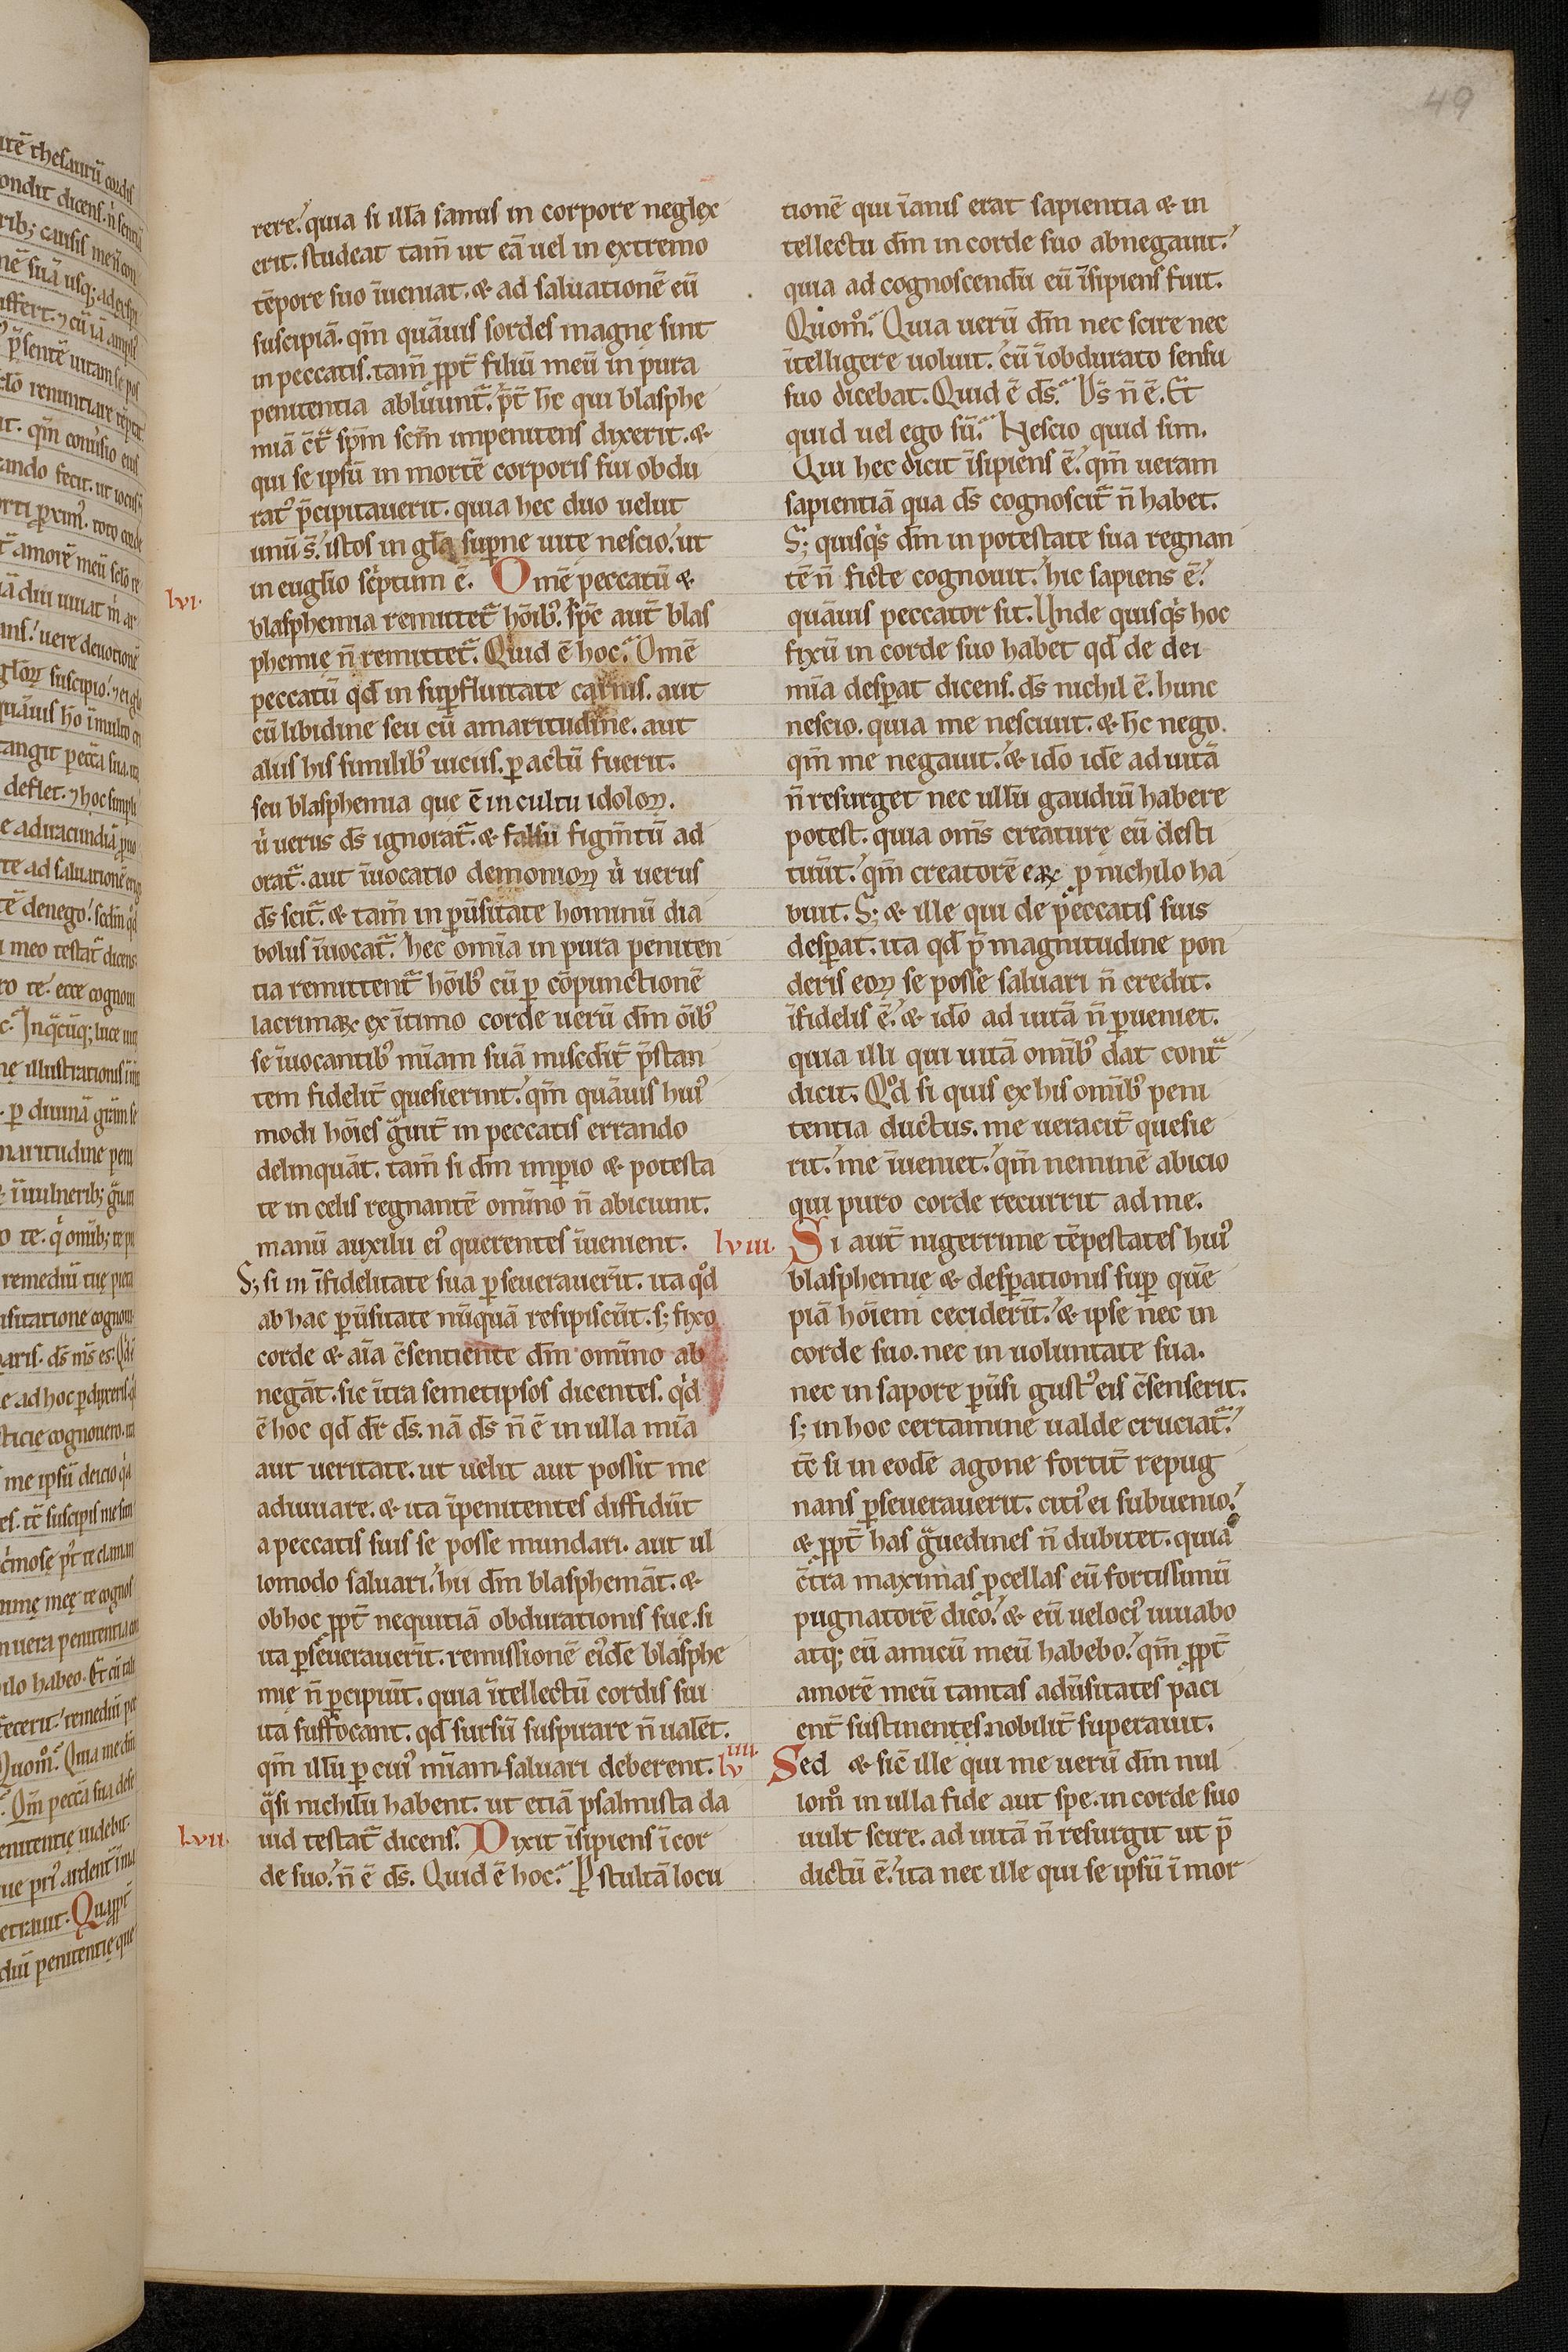 49
rere. quia si illā sanus in corpore neglex
erit. studeat tam̄ ut eā uel in extremo
tēpore suo īueniat. & ad saluationē eū
suscipiā. qm̄ quāuis sordes magne sint
in peccatis. tam̄ ꝓpt̄ filiū meū in pura
penitentia abluunt᷑. p̄t h̄c qui blasphe
miā c̄t᷑ sp̄m sc̄m impenitens dixerit. &
qui se ipsū in mortē corporis sui obdu
rat᷒ p̄cipitauerit. quia hec duo uelut
unū s̄. istos in gl̄a suꝑne uite nescio. ut
in euglio sc̓ptum ē. Omē peccatū &
lvi.
blasphemia remittet᷑ hoīb᷒. sp̄c aut̄ blas
phemię n̄ remittet᷑. Quid ē hoc. Omē
peccatū qd̄ in suꝑfluitate carnis. aut
cū libidine seu cū amaritudine. aut
aliis his similib᷒ uiciis. ꝑactū fuerit.
seu blasphemia que ē in cultu idoloꝝ.
u̓ uerus ds̄ ignorat᷑. & falsū figm̄tū ad
orat᷑. aut īuocatio demonioꝝ u̓ uerus
ds̄ scit᷑. & tam̄ in ꝑūsitate hominū dia
bolus īuocat᷑. hec om̄ia in pura peniten
tia remittent᷑ hoīb᷒ cū ꝑ cōpunctionē
lacrimaꝝ ex ītimo corde uerū dm̄ oīb᷒
se īuocantib᷒ mīam suā misc̄dit̄ p̄stan
tem fidelit̄ quesierint. qm̄ quāuis hui᷒
modi hoīes g᷑uit̄ in peccatis errando
delinquāt. tam̄ si dm̄ imꝑio & potesta
te in celis regnantē omīno n̄ abiciunt.
manū auxilii ei᷒ querentes īuenient.
S; si in īfidelitate sua ꝑseuerauerīt. ita qd̄
ab hac ꝑūsitate nūquā resipiscūt. s; fixo
corde & aīa c̄sentiente dm̄ omīno ab
negāt. sic īt᷑a semetipsos dicentes. qd̓
ē hoc qd̄ dr̄ ds̄. nā ds̄ n̄ ē in ulla mīa
aut ueritate. ut uelit aut possit me
adiuuare. & ita īpenitentes diffidūt
a peccatis suis se posse mundari. aut ul
lomodo saluari. hii dm̄ blasphemāt. &
ob hoc ꝓpt̄ nequitiā obdurationis sue. si
ita ꝑseuerauerīt. remissionē ei᷒dē blasphe
mię n̄ ꝑcipiūt. quia ītellectū cordis sui
ita suffocant. qd̄ sursū suspirare n̄ ualēt.
qm̄ illū ꝑ cui᷒ mīam saluari deberent.
q᷑si nichilū habent. ut etiā psalmista da
lvii.
uid testat᷑ dicens. Dixit īsipiens ī cor
de suo. n̄ ē ds̄. Quid ē hoc. P̱ stultā locu
tionē qui īanis erat sapientia & in
tellectu dm̄ in corde suo abnegauit.
quia ad cognoscendū eū īsipiens fuit.
Quom̊. Quia uerū dm̄ nec scire nec
ītelligere uoluit. cū ī obdurato sensu
suo dicebat. Quid ē ds̄. Ds̄ n̄ ē. Et
quid uel ego sū. Nescio quid sim.
Qui hec dicit īsipiens ē. qm̄ ueram
sapientiā qua ds̄ cognoscit᷑ n̄ habet.
S; quisq̓s dm̄ in potestate sua regnan
tē n̄ ficte cognouit. hic sapiens ē.
quāuis peccator sit. Unde quisq̓s hoc
fixū in corde suo habet qd̄ de dei
mīa desꝑat dicens. ds̄ nichil ē. hunc
nescio. quia me nesciuit. & h̄c nego.
qm̄ me negauit. & ido īde ad uitā
n̄ resurget nec ullū gaudiū habere
potest. quia om̄s creature eū desti
tuūt. qm̄ creatorē eaꝝ ꝓ nichilo ha
buit. S; & ille qui de peccatis suis
desꝑat. ita qd̄ p̄ magnitudine pon
deris eoꝝ se posse saluari n̄ credit.
īfidelis ē. & ido ad uitā n̄ ꝑueniet.
quia illi qui uitā omīb᷒ dat cont᷑
dicit. Qd̊ si quis ex his omīb᷒ peni
tentia ductus. me ueracit̄ quesie
rit. me īueniet. qm̄ neminē abicio
qui puro corde recurrit ad me.
lviii. Si aut̄ nigerrime tēpestates hui᷒
blasphemię & desꝑationis suꝑ quē
piā hoīem ceciderīt. & ipse nec in
corde suo. nec in uoluntate sua.
nec in sapore ꝑūsi gust᷒ eis c̄senserit.
s; in hoc certamine ualde cruciat᷑.
tē si in eodē agone fortit̄ repug
nans ꝑseuerauerit. citi᷒ ei subuenio.
& ꝓpt̄ has g᷑uedines n̄ dubitet. quia
c̄tra maximas ꝓcellas eū fortissimū
pugnatorē dico. & eū ueloci᷒ iuuabo
atq; eū amicū meū habebo. qm̄ ꝓpt̄
amorē meū tantas adūsitates paci
ent̄ sustinentes nobilit̄ superauit.
lviiii Sed & sic ille qui me uerū dm̄ nul
lom̊ in ulla fide aut spe. in corde suo
uult scire. ad uitā n̄ resurgit ut p̄
dictū ē. ita nec ille qui se ipsū ī mor